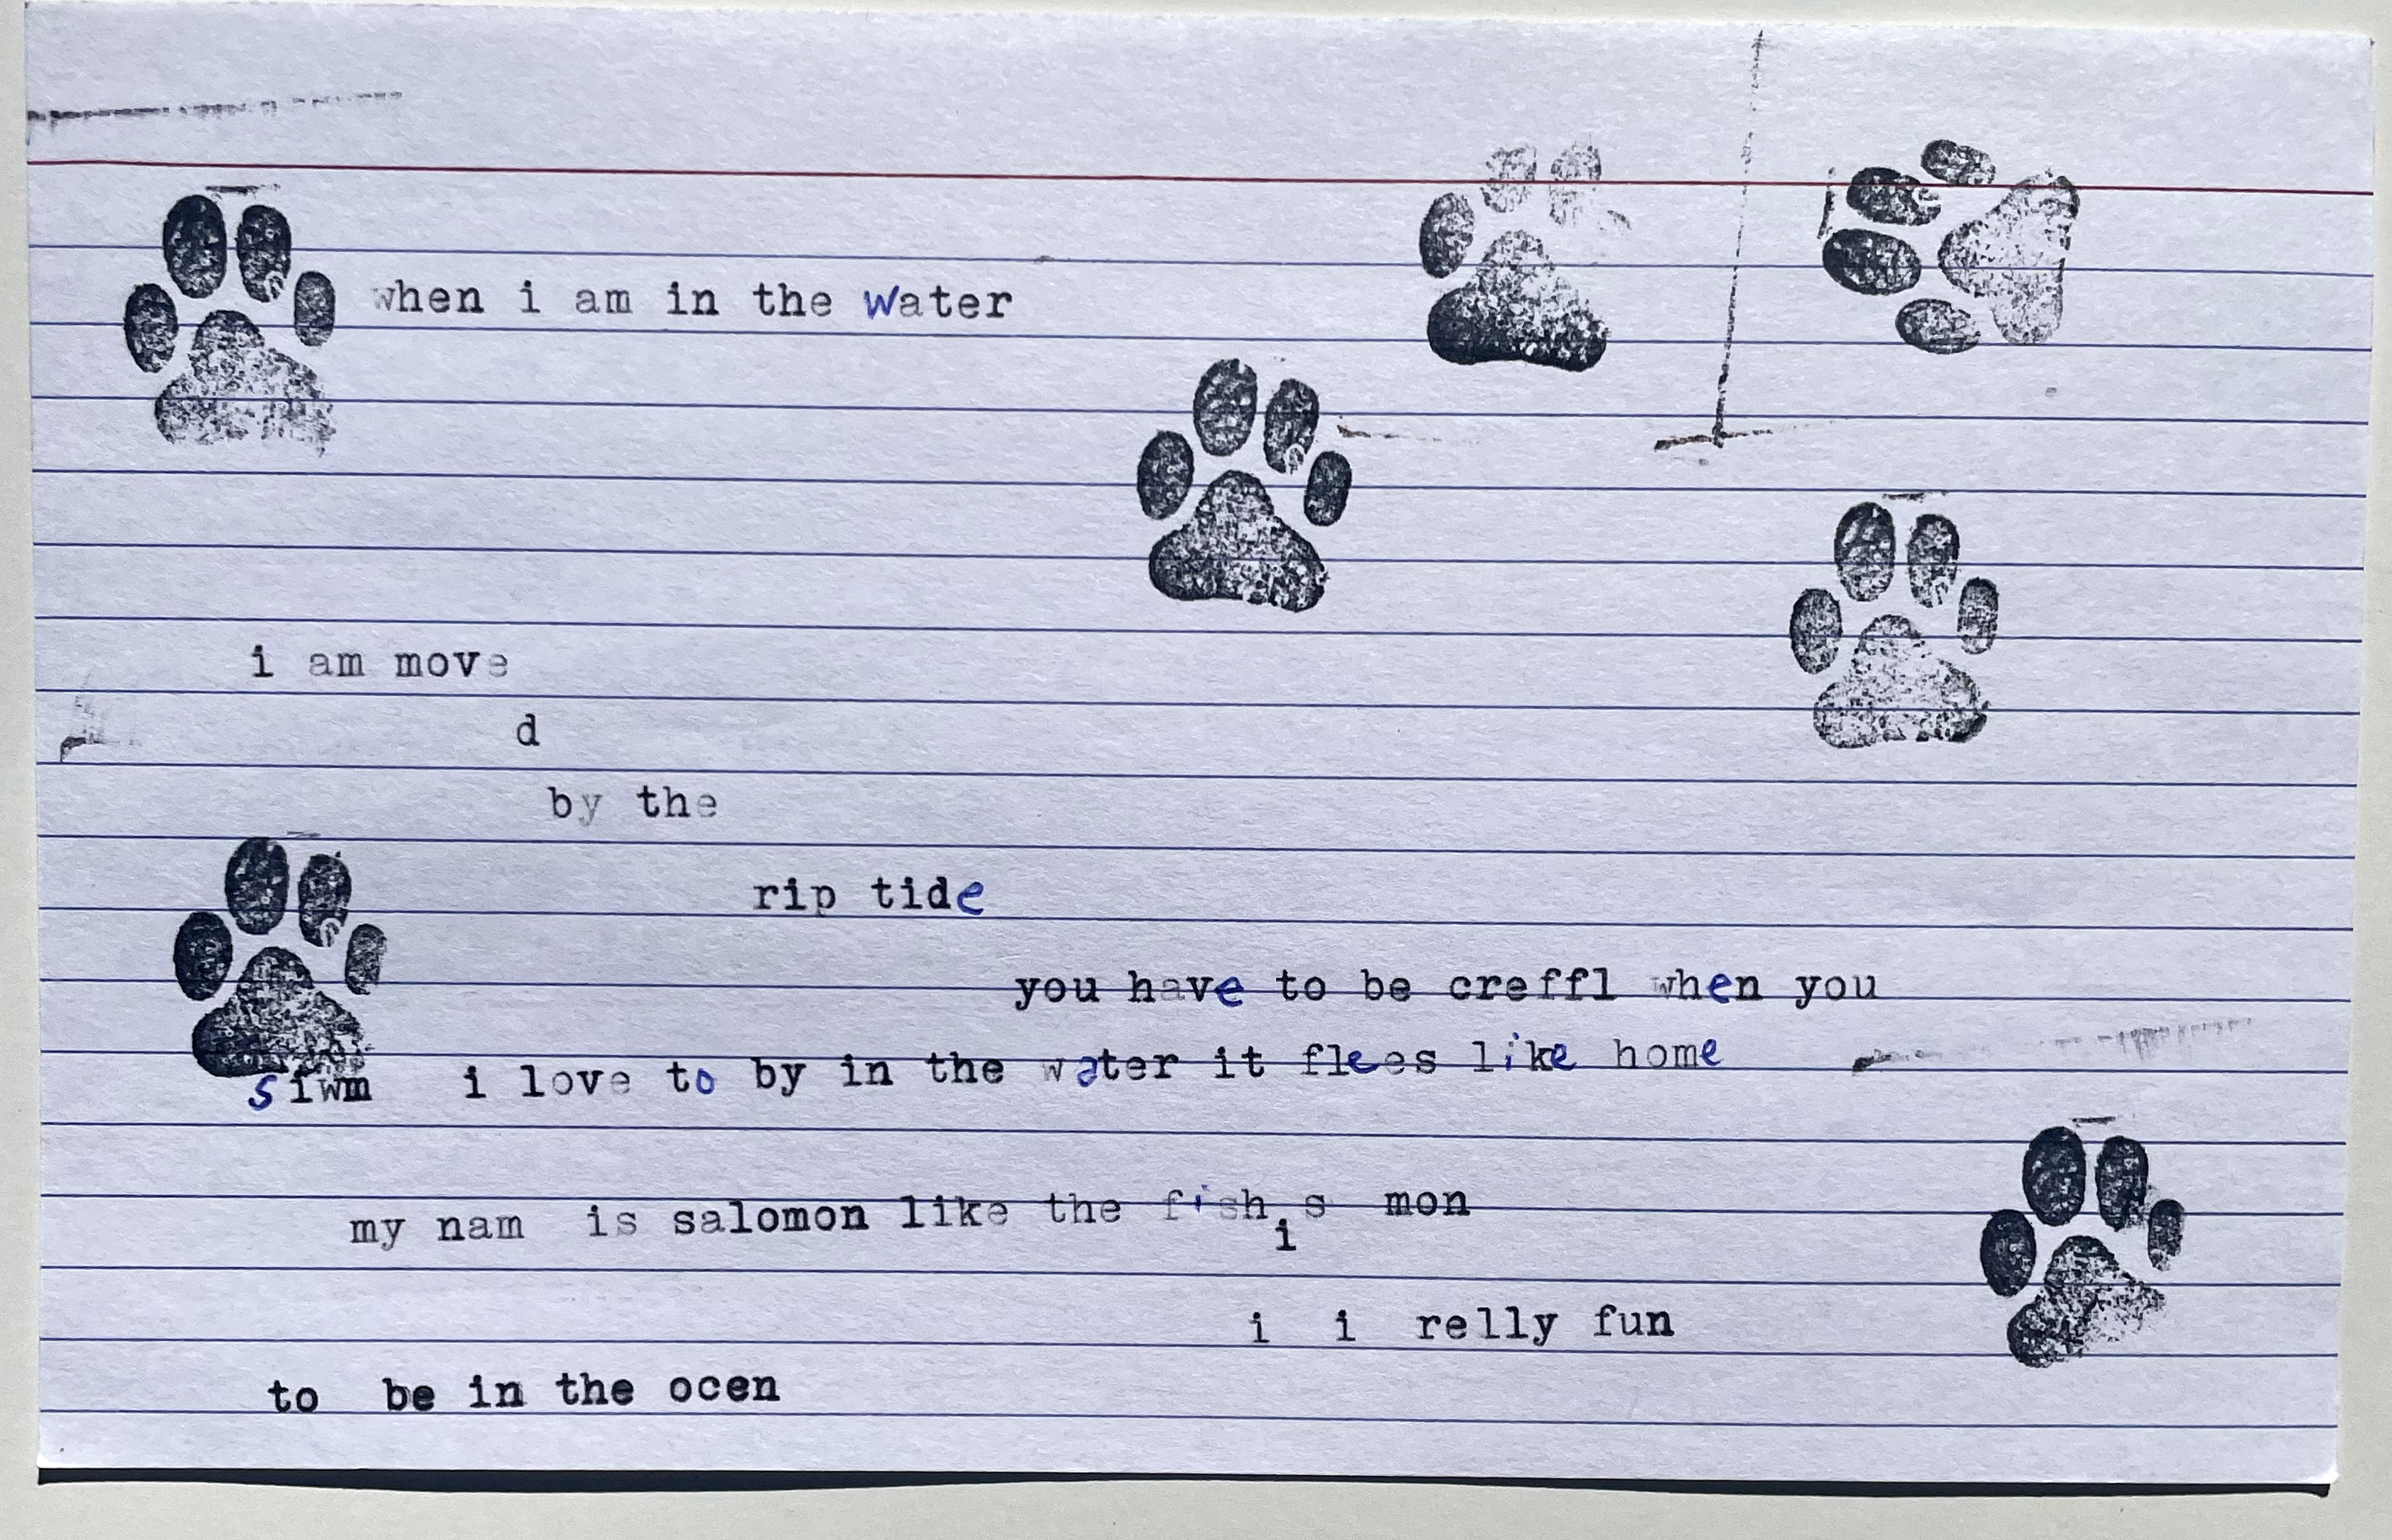 when i am in the water
i am move
d
by the
rip tide
you have to be creffl when you
siwm i love to by in the water it flees like home
my nam is salomon like the fish s mon
i
i i relly fun
to be in the ocen